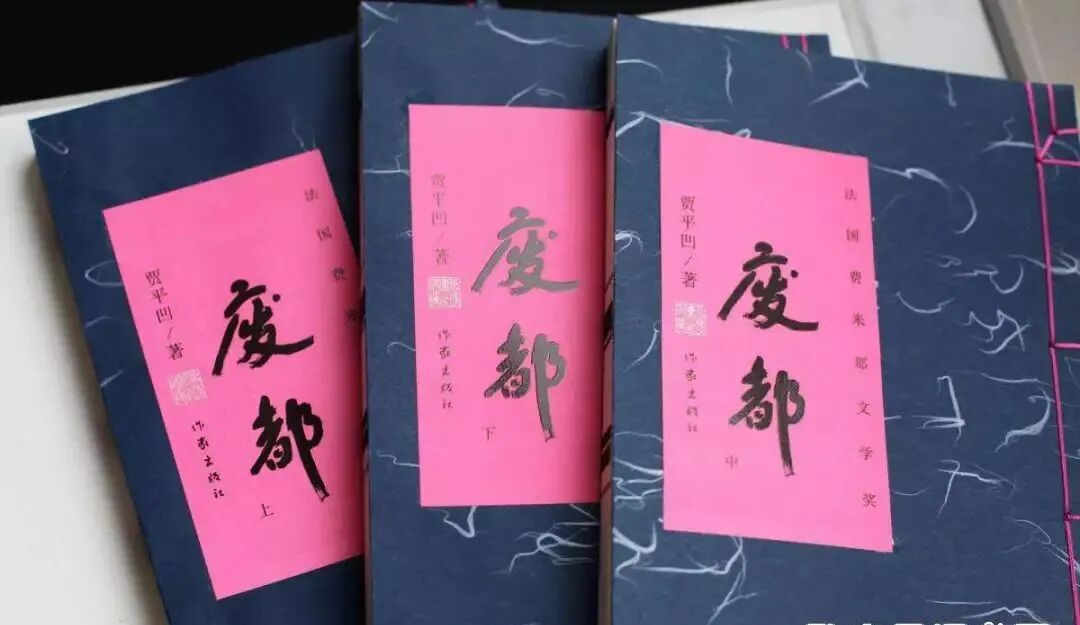 法国费米
废都
上
贾平凹/著
作家出版社
废都
下
贾平凹/著
作家出版社
法国费米那文学奖
废都
中
贾平凹/著
作家出版社